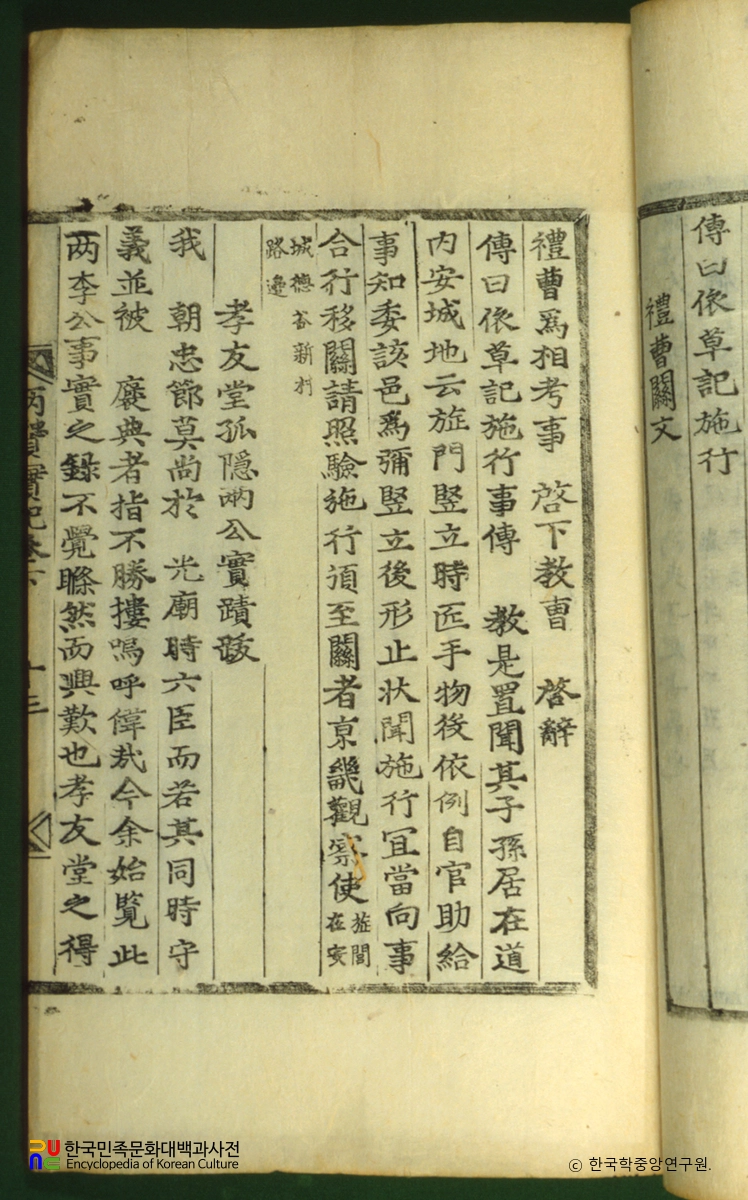 傳曰依草記施行
禮曹關文
禮曹爲相考事 啓下教曺 啓辭
傳曰依草記施行事傳 教是置聞其子孫居在道
内安城地云旌門竪立時匠手物役依例自官助給
事知委該邑爲彌竪立後形止狀聞施行宜當向事
合行移關請照驗施行須至關者京畿觀察使 旌閭在安
城德谷新村路邊
孝友堂孤隱兩公實蹟跋
我 朝忠節莫尚於 光廟時六臣而若其同時守
義並被 褒典者指不勝摟嗚呼偉哉今余始覧此
两李公事實之錄不覺睠然而興歎也孝友堂之得
兩賢實記卷下 十三
한국민족문화대백과사전
Encyclopedia of Korean Culture
© 한국학중앙연구원.